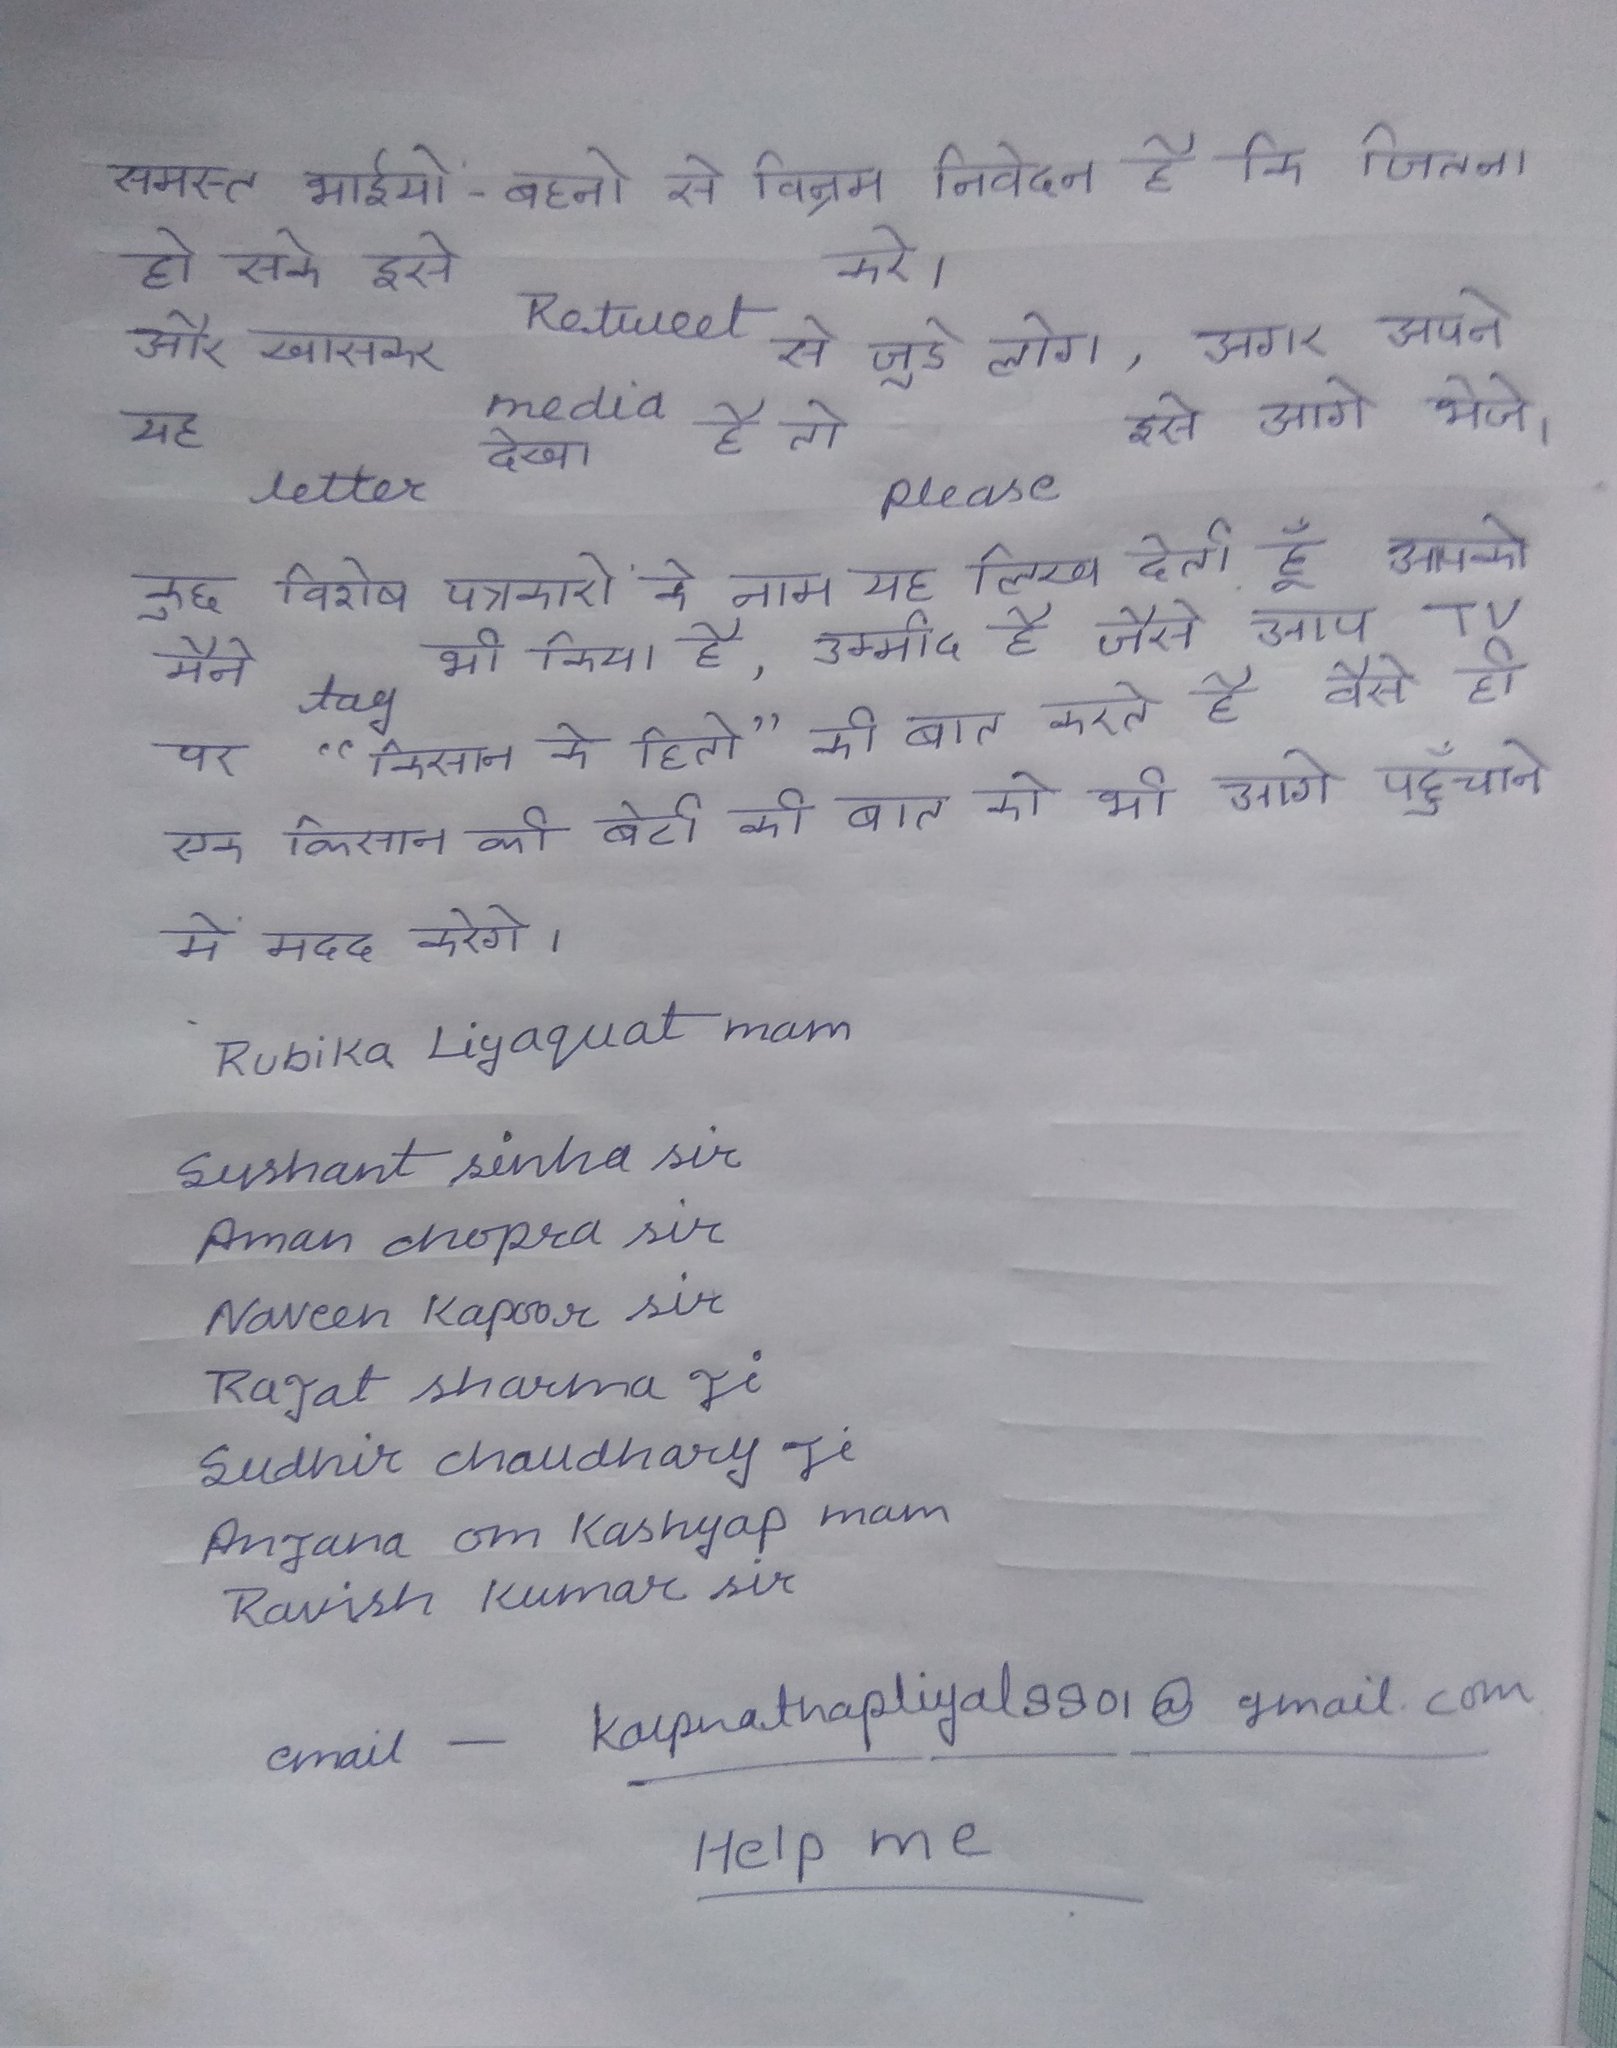 समस्त भाईयों - बहनो से विन्रम निवेदन है कि जितना
हो सके इसे Retweet करे।
और खासकर media से जुडे लोग, अगर अपने
यह letter देखा है तो please इसे आगे भेजे।
कुछ विशेष पत्रकारों के नाम यह लिख देती हूँ आपको
मैने tag भी किया है, उम्मीद है जैसे आप TV
पर "किसान के हितो" की बात करते है वैसे ही
एक किसान की बेटी की बात को भी आगे पहुँचाने
में मदद करेगे।
Rubika Liyaquat mam
Sushant sinha sir
Aman chopra sir
Naveen Kapoor sir
Rajat sharma Ji
Sudhir chaudhary Ji
Anjana om Kashyap mam
Ravish Kumar sir
email — kalpnathapliyal9901@gmail.com
Help me